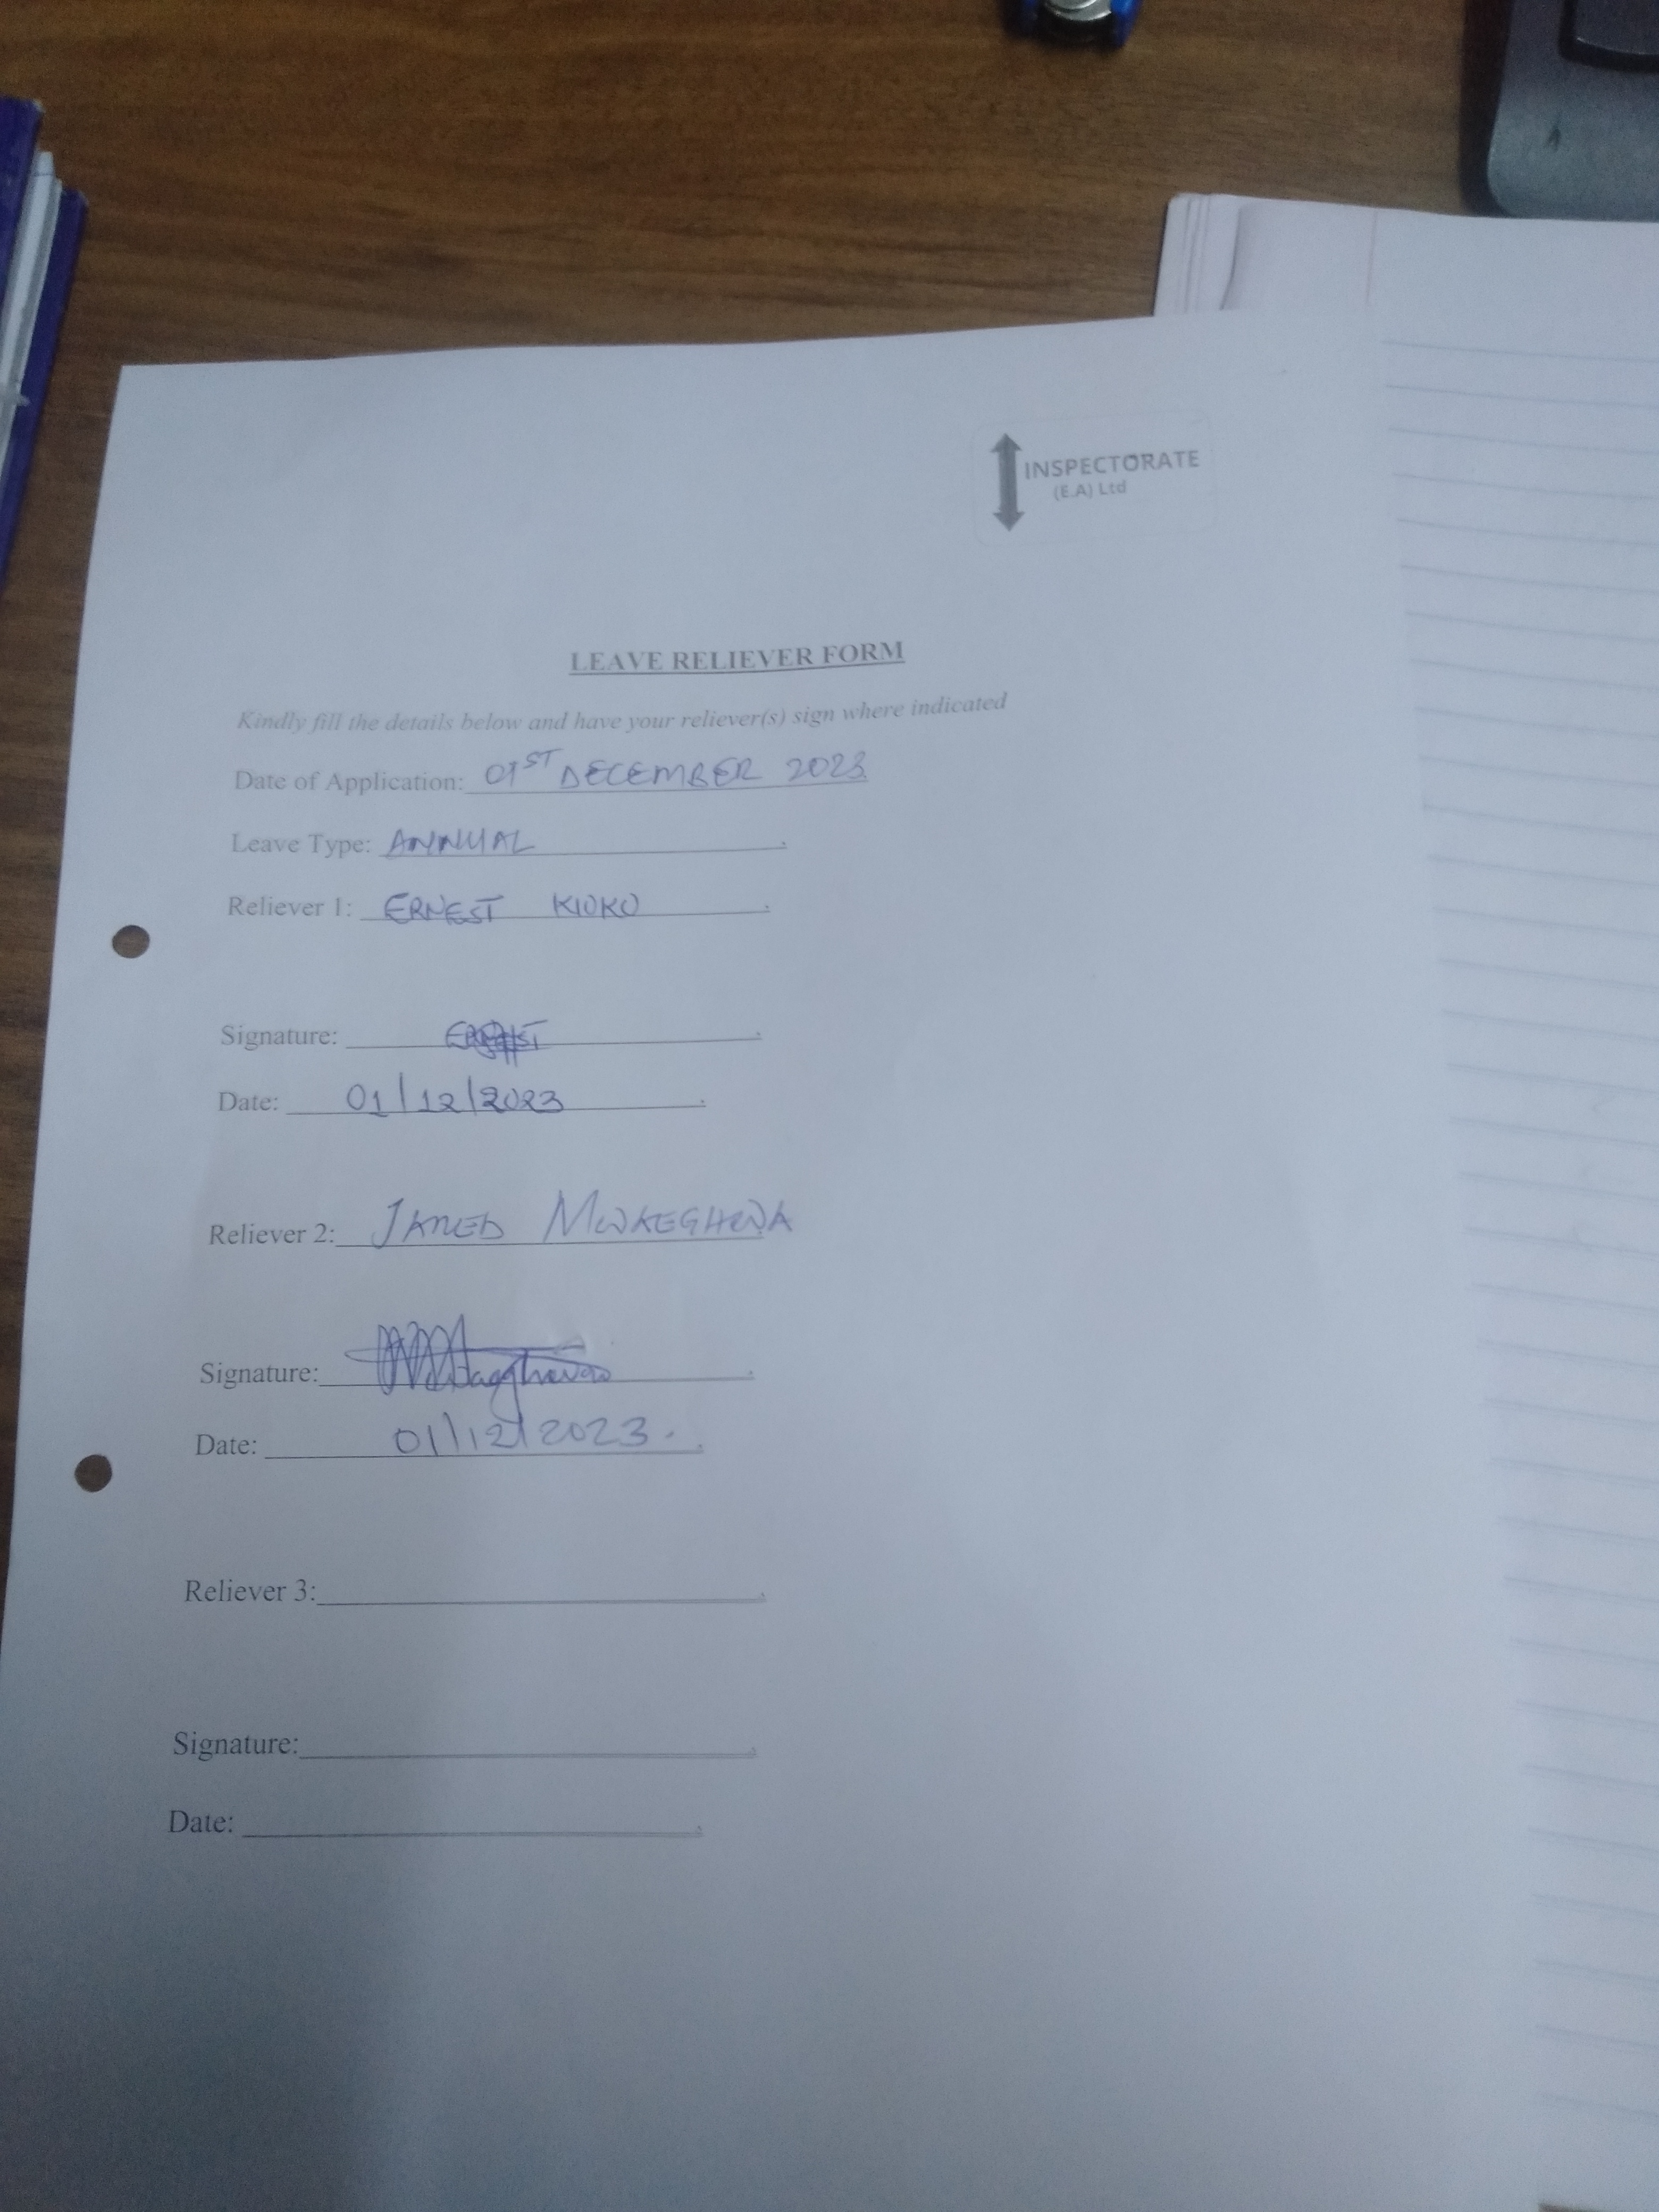 INSPECTORATE
(E.A) Ltd
LEAVE RELIEVER FORM
Kindly fill the details below and have your reliever(s) sign where indicated
Date of Application: 01ST DECEMBER 2023
Leave Type: ANNUAL
Reliever 1: ERNEST KIOKO
Signature: ERNEST
Date: 01/12/2023
Reliever 2: JARED
Signature:
Date: 01/12/2023.
Reliever 3:
Signature:
Date: